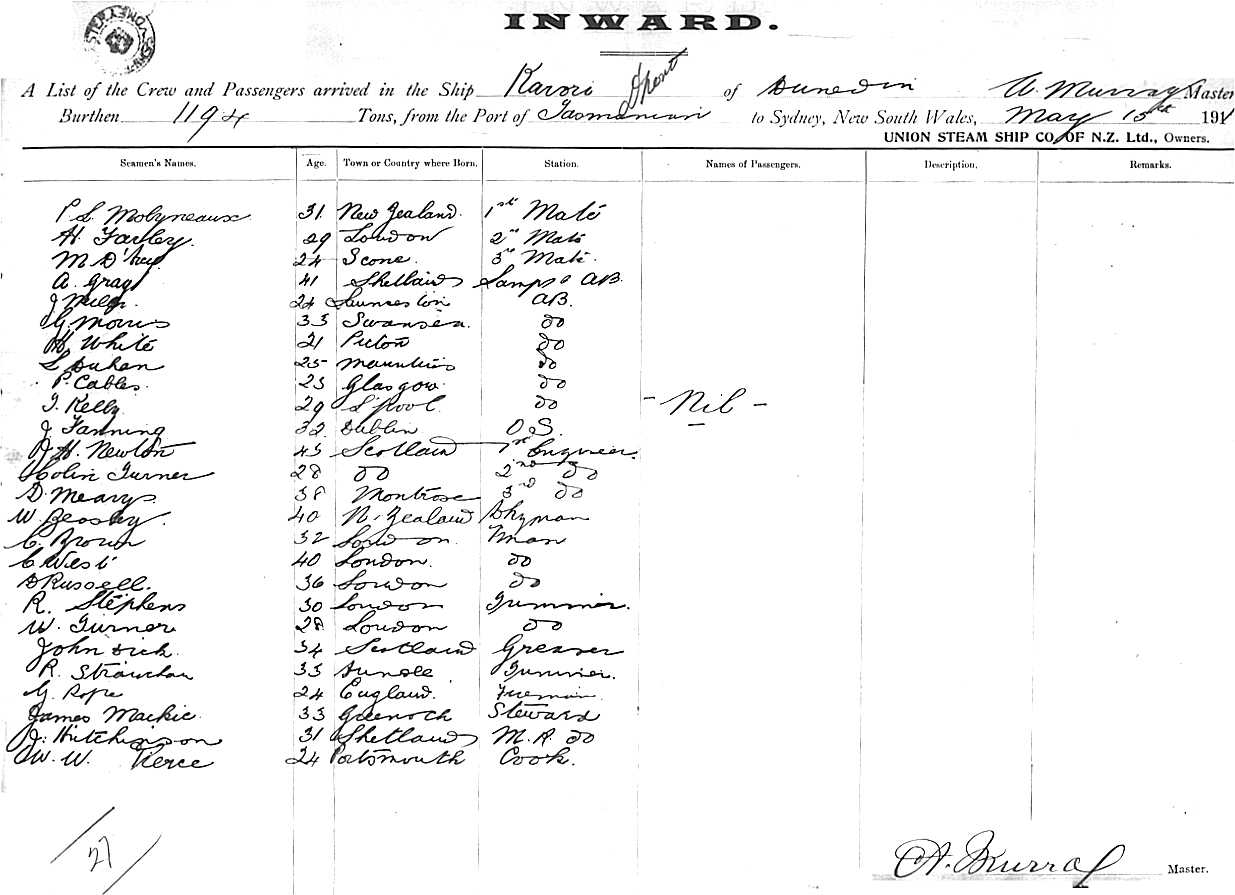 INWARD.
A List of the Crew and Passengers arrived in the Ship Karori of Dunedin A. Murray Master
Burthen 1194 Tons, from the Port of Tasmanian to Sydney, New South Wales, May 15th 191
UNION STEAM SHIP CO. OF N.Z. Ltd., Owners.
Seamen's Names. Age. Town or Country where Born. Station. Names of Passengers. Description. Remarks.
P L Molyneaux 31 New Zealand. 1st Mate
H. Farley. 29 London 2nd Mate
M 24 Scone. 3rd Mate.
A. Gray 41 Shetlands Lamps & AB.
J 24 AB.
G. Morris 33 Swansea. do
H White 21 Picton do
L 25 Mauritius do
P. Cables. 23 Glasgow. do
T. Kelly 29 L'pool do
- Nil -
J Fanning 32 Dublin O.S.
J H. Newton 45 Scotland 1st Engineer.
Colin Turner 28 do 2nd do
D. Mearys 38 Montrose 3rd do
W. 40 N. Zealand
C. Brown 32 London. man
C West 40 London. do
D Russell. 36 London do
R. Stephens 30 London Trimmer.
W. Turner 28 London do
John Dick. 34 Scotland Greaser
R. Strawchan 33 Dundee Trimmer.
G. Pope 24 England. Fireman.
James Mackie. 33 Greenock Steward
J. Hutchinson 31 Shetlands M.R. do
W. W. Pierce 24 Portsmouth Cook.
27
A. Murray Master.